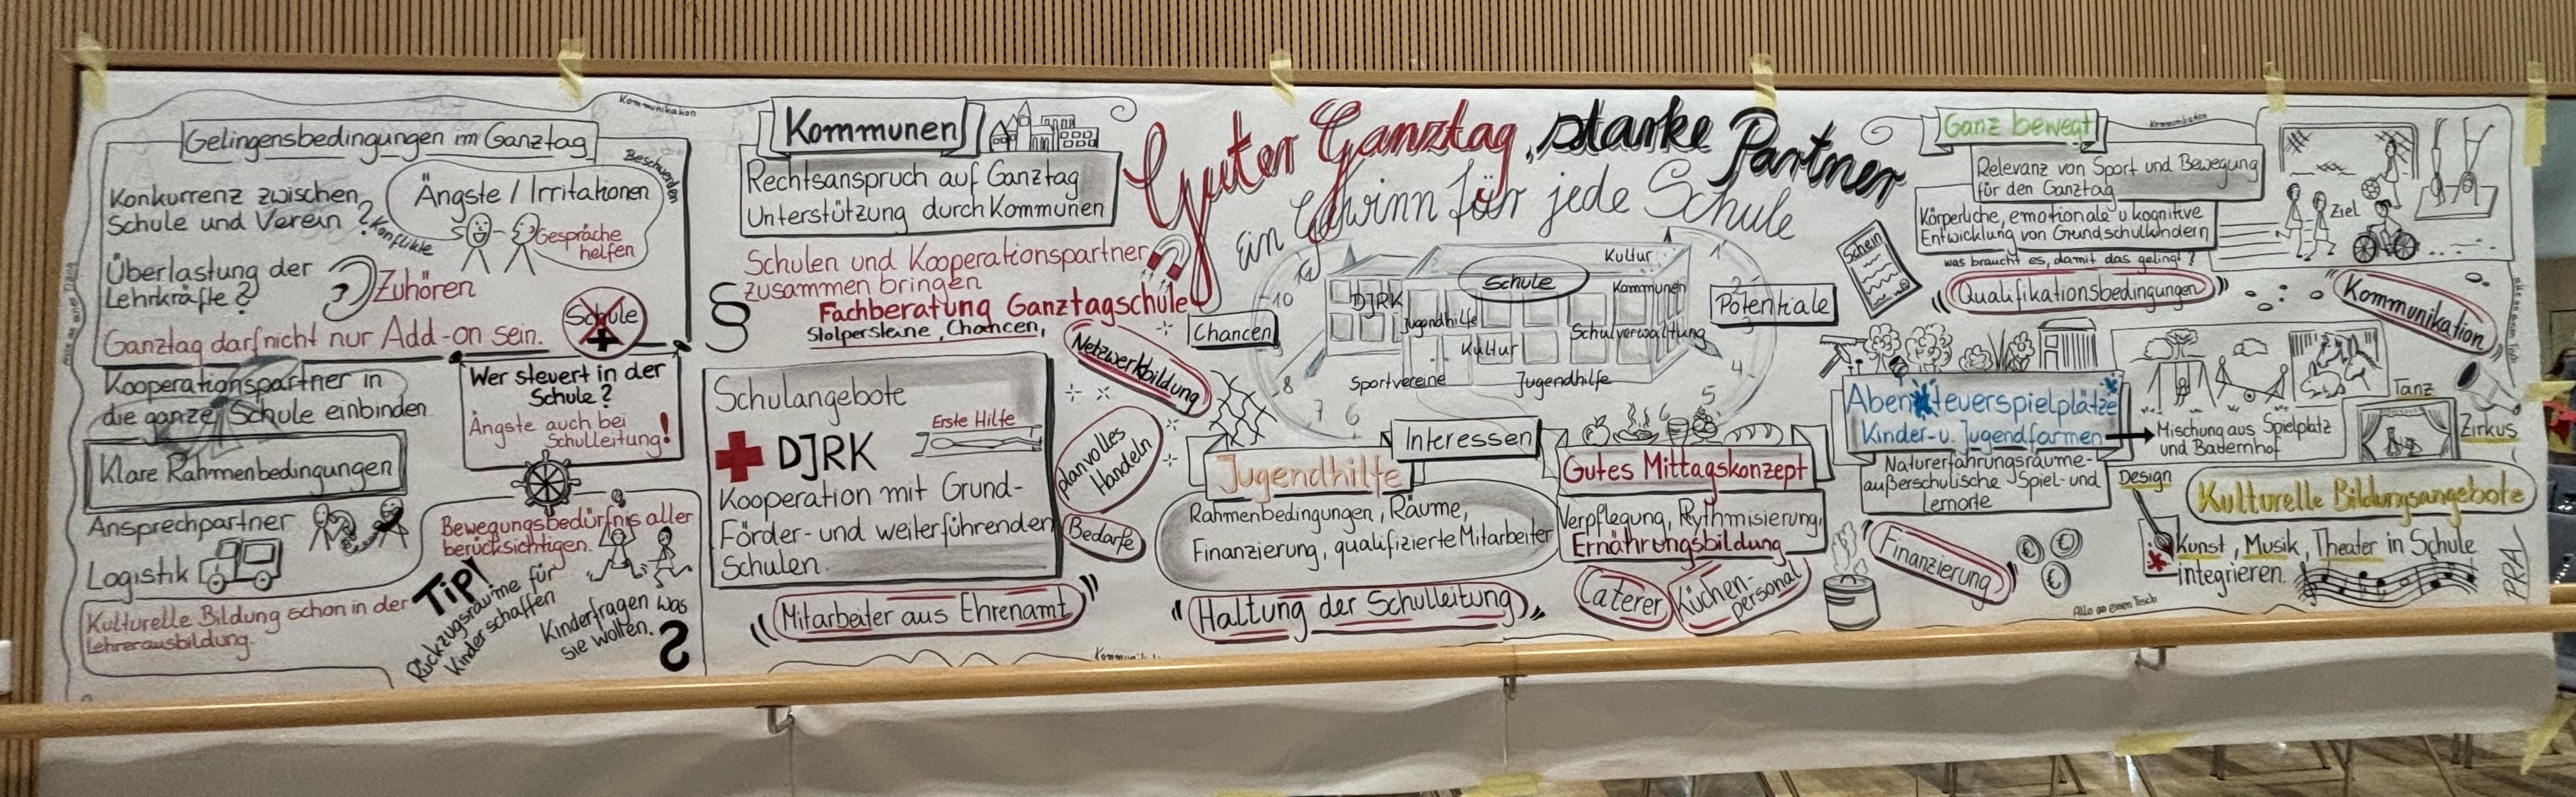 Guter Ganztag, starke Partner
Ein Gewinn für jede Schule
Kommunikation
Gelingensbedingungen im Ganztag
Konkurrenz zwischen
Schule und Verein?
Konflikte
Ängste / Irritationen
Beschwerden
Gespräche
helfen
Überlastung der
Lehrkräfte?
Zuhören
Ganztag darf nicht nur Add-on sein.
Schule
+
Kooperationspartner in
die ganze Schule einbinden
Wer steuert in der
Schule?
Ängste auch bei
Schulleitung!
Klare Rahmenbedingungen
Ansprechpartner
Logistik
Bewegungsbedürfnis aller
berücksichtigen.
Kulturelle Bildung schon in der
Lehrerausbildung.
Tip!
Rückzugsräume für
Kinder schaffen
Kinder fragen was
sie wollen.
?
Kommunen
Rechtsanspruch auf Ganztag
Unterstützung durch Kommunen
Schulen und Kooperationspartner
zusammen bringen
§
Fachberatung Ganztagschule
Stolpersteine, Chancen,
Netzwerkbildung
Schulangebote
Erste Hilfe
DJRK
Kooperation mit Grund-
Förder- und weiterführenden
Schulen.
planvolles
Handeln
Bedarfe
"Mitarbeiter aus Ehrenamt"
Chancen
Potentiale
Interessen
Kultur
Schule
DJRK
Kommunen
Jugendhilfe
Schulverwaltung
Kultur
Sportvereine
Jugendhilfe
1
2
3
4
5
6
7
8
10
Jugendhilfe
Rahmenbedingungen, Räume,
Finanzierung, qualifizierte Mitarbeiter
"Haltung der Schulleitung"
Gutes Mittagskonzept
Verpflegung, Rythmisierung,
Ernährungsbildung
Caterer
Küchen-
personal
Ganz bewegt
Kommunikation
Relevanz von Sport und Bewegung
für den Ganztag
Körperliche, emotionale u. kognitive
Entwicklung von Grundschulkindern
was braucht es, damit das gelingt?
"Qualifikationsbedingungen"
Schein
Ziel
"Kommunikation"
Abenteuerspielplätze
Kinder- u. Jugendfarmen
Mischung aus Spielplatz
und Bauernhof
Naturerfahrungsräume-
außerschulische Spiel- und
Lernorte
Tanz
Zirkus
Design
Kulturelle Bildungsangebote
Kunst, Musik, Theater in Schule
integrieren.
"Finanzierung"
€
€
€
Alle an einen Tisch
PRA